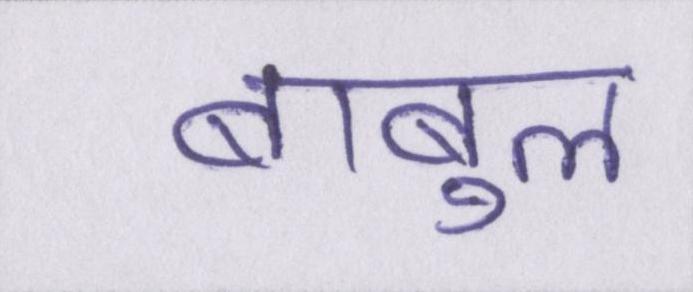 बाबुल